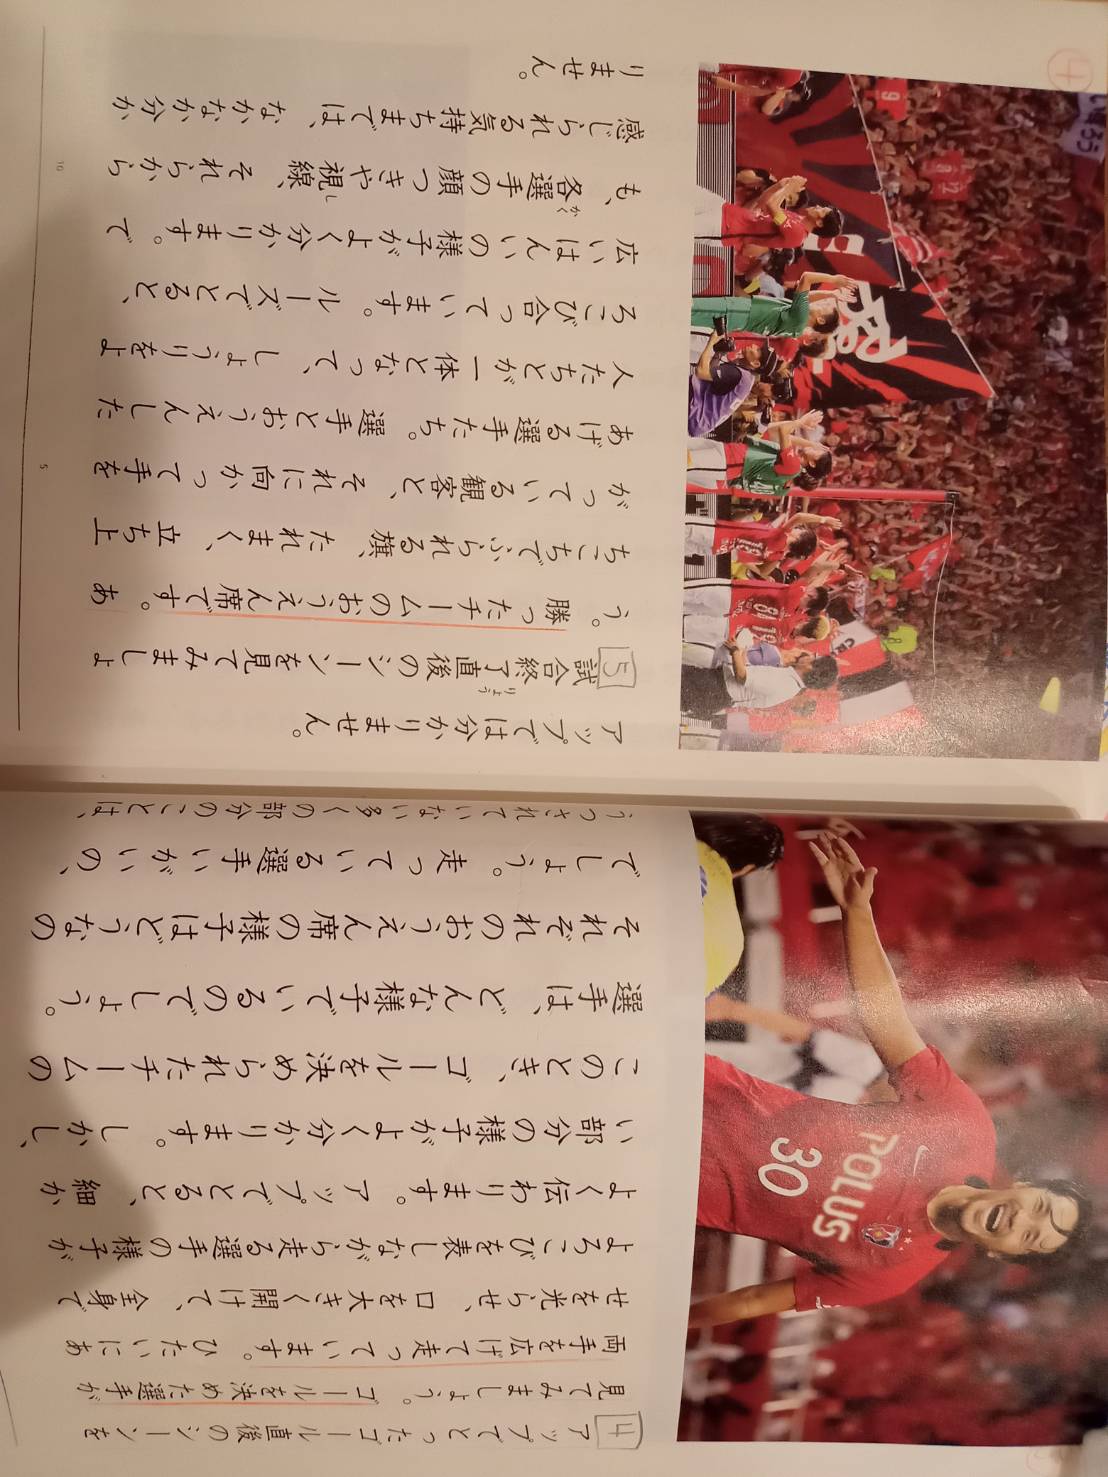 4
アップでとったゴール直後のシーンを
見てみましょう。ゴールを決めた選手が
両手を広げて走っています。ひたいにあ
せを光らせ、口を大きく開けて、全身で
よろこびを表しながら走る選手の様子が
よく伝わります。アップでとると、細か
い部分の様子がよく分かります。しかし、
このとき、ゴールを決められたチームの
選手は、どんな様子でいるのでしょう。
それぞれのおうえん席の様子はどうなの
でしょう。走っている選手いがいの、
うつされていない多くの部分のことは、
アップでは分かりません。
5
試合終了直後のシーンを見てみましょ
りょう
う。勝ったチームのおうえん席です。あ
ちこちでふられる旗、たれまく、立ち上
がっている観客と、それに向かって手を
あげる選手たち。選手とおうえんした
人たちとが一体となって、しょうりをよ
ろこび合っています。ルーズでとると、
広いはんいの様子がよく分かります。で
も、各選手の顔つきや視線、それらから
かく
し
感じられる気持ちまでは、なかなか分か
りません。
5
10
4
POLUS
30